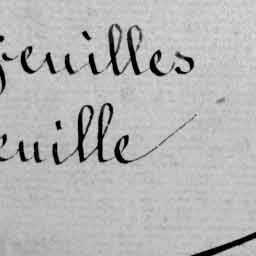 feuilles
euille